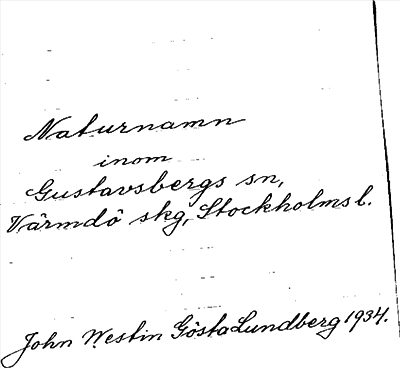 Naturnamn
inom
Gustavsbergs sn,
Värmdö skg, Stockholms l.
John Westin Gösta Lundberg 1934.